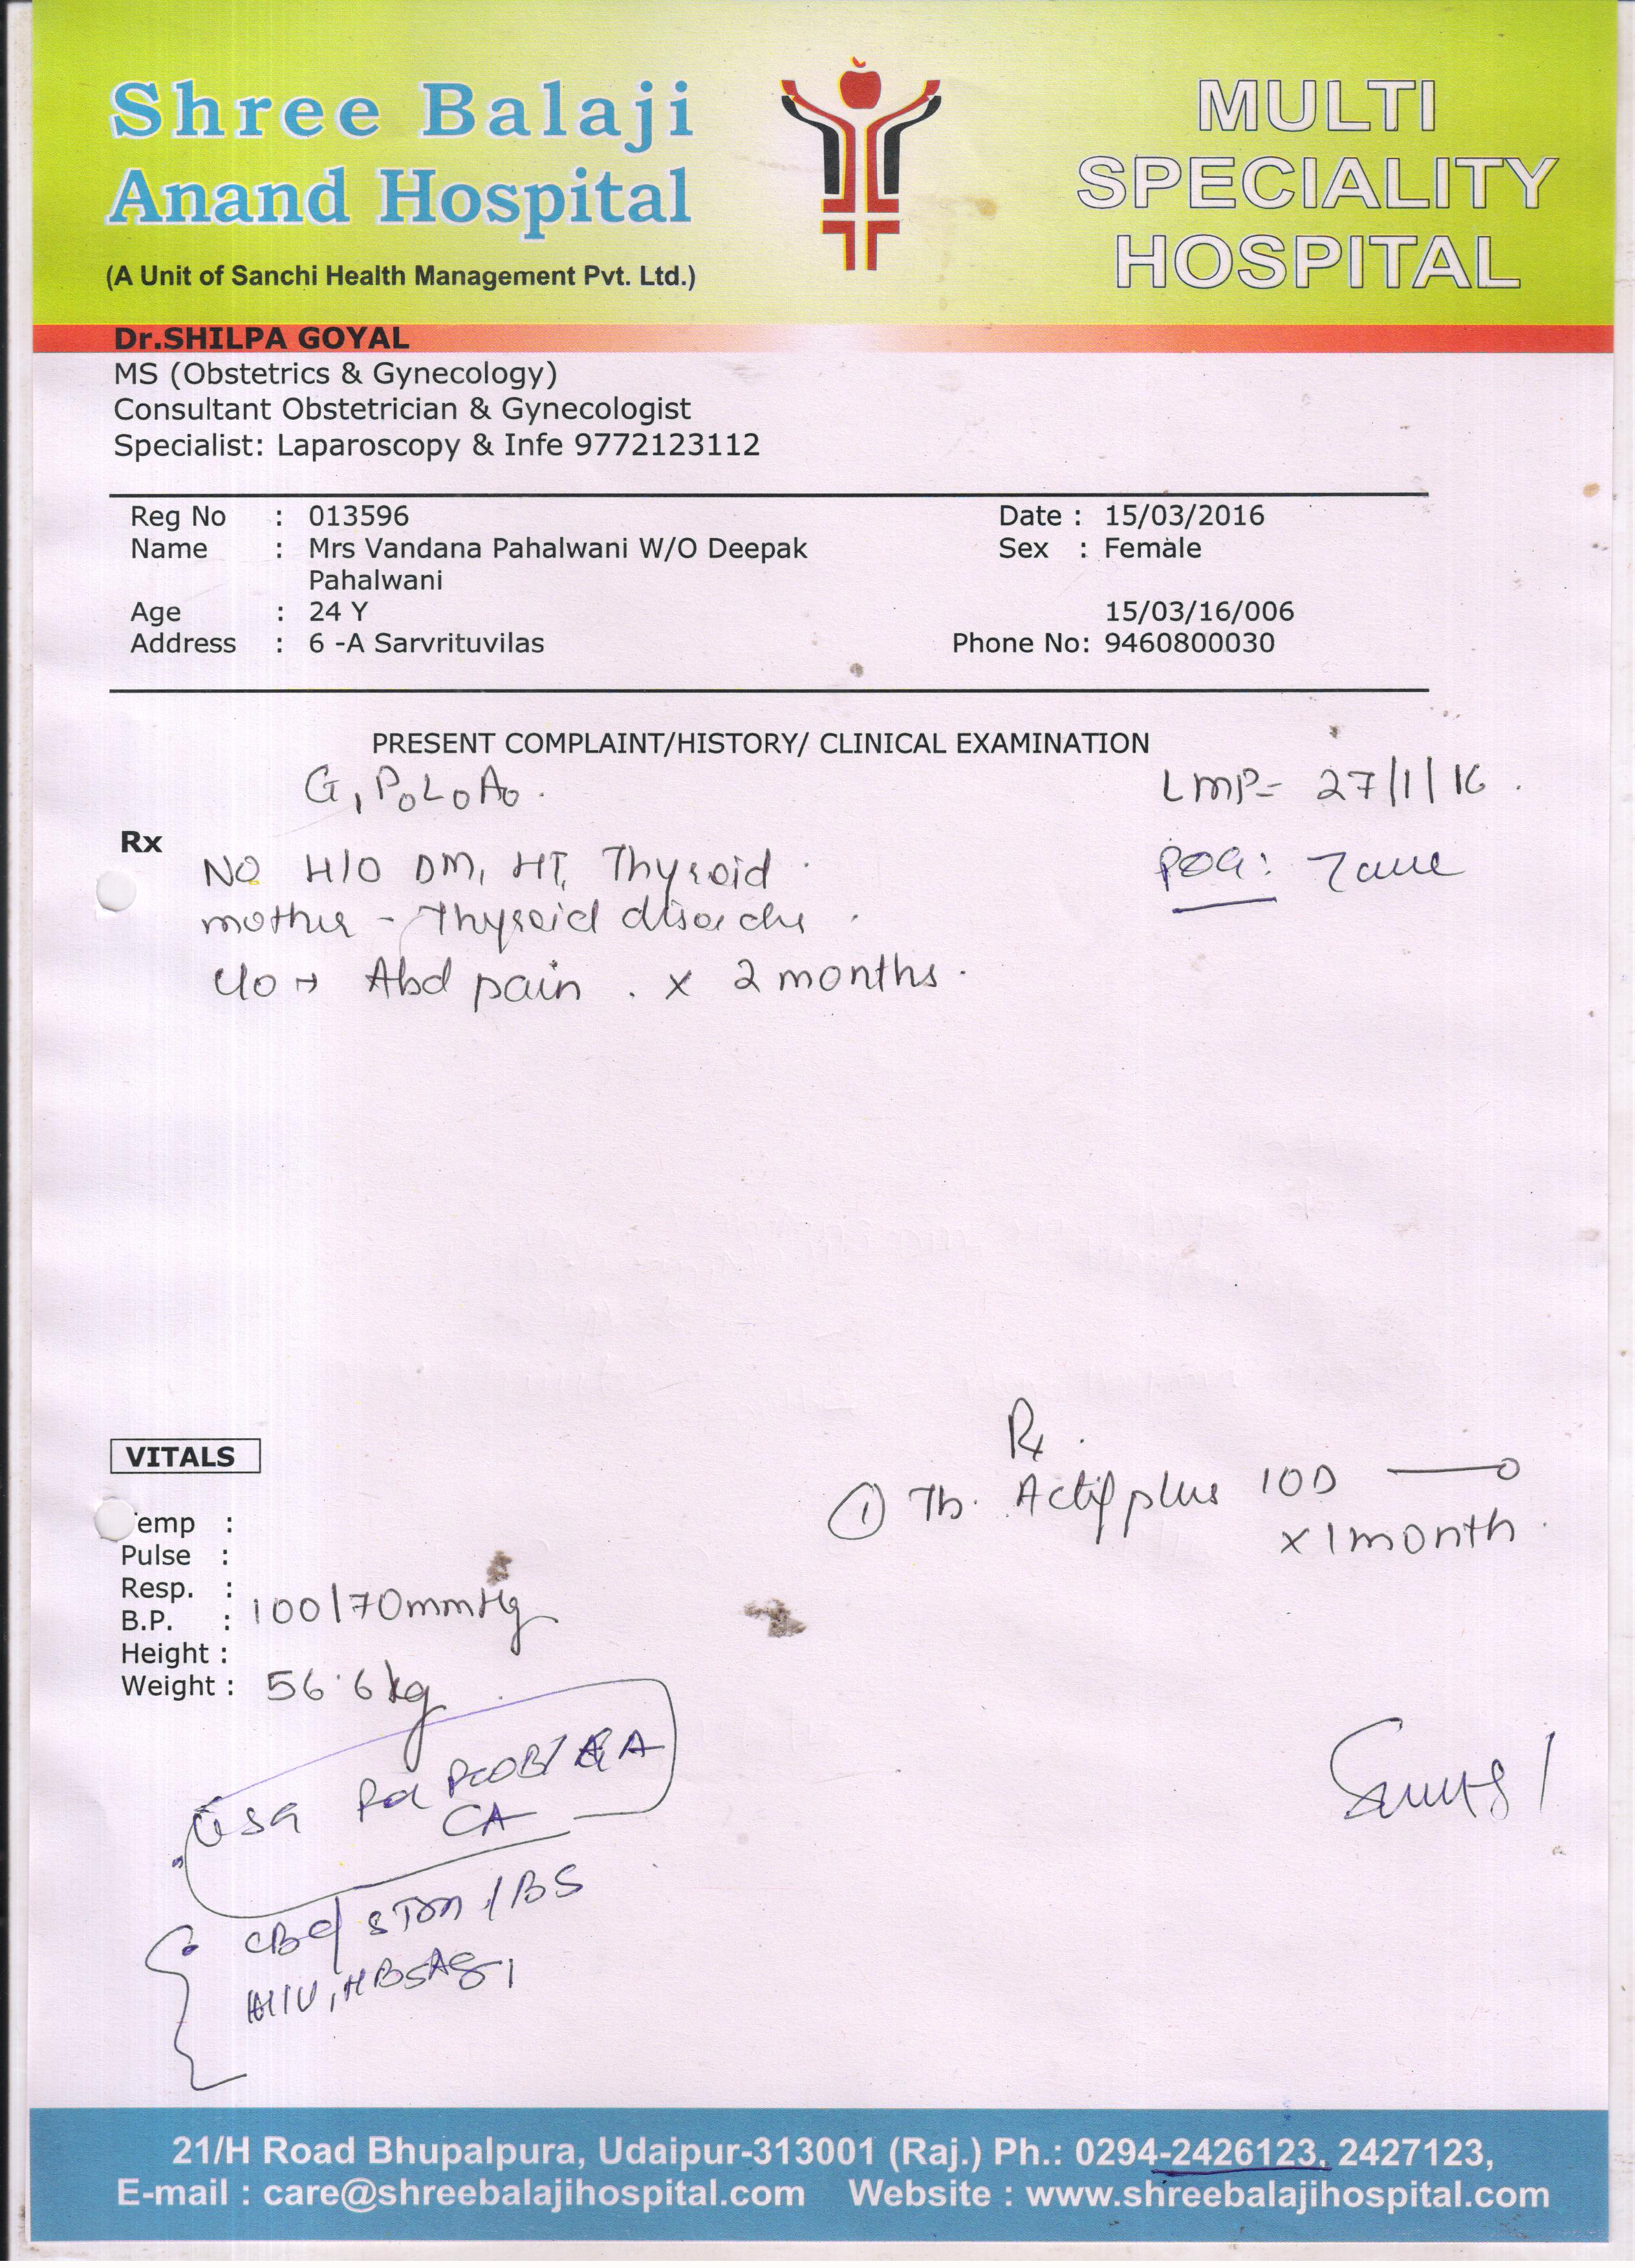 Shree Balaji
Anand Hospital
(A Unit of Sanchi Health Management Pvt. Ltd.)
MULTI
SPECIALITY
HOSPITAL
Dr.SHILPA GOYAL
MS (Obstetrics & Gynecology)
Consultant Obstetrician & Gynecologist
Specialist: Laparoscopy & Infe 9772123112
Reg No : 013596 Date : 15/03/2016
Name : Mrs Vandana Pahalwani W/O Deepak Sex : Female
Pahalwani
Age : 24 Y 15/03/16/006
Address : 6 -A Sarvrituvilas Phone No: 9460800030
PRESENT COMPLAINT/HISTORY/ CLINICAL EXAMINATION
G1P0L0A0. LMP= 27/1/16.
Rx
NO H/O DM, HT, Thyroid POG:
mother - Thyroid
C/o → Abd pain . x 2 months.
Rx.
① Tb. Actif plus 1OD
x 1 month.
VITALS
Temp :
Pulse :
Resp. :
B.P. : 100/70mmHg
Height :
Weight : 56.6kg
CA
CBC / BS
HIV, HBSAg,
21/H Road Bhupalpura, Udaipur-313001 (Raj.) Ph.: 0294-2426123, 2427123,
E-mail : care@shreebalajihospital.com Website : www.shreebalajihospital.com